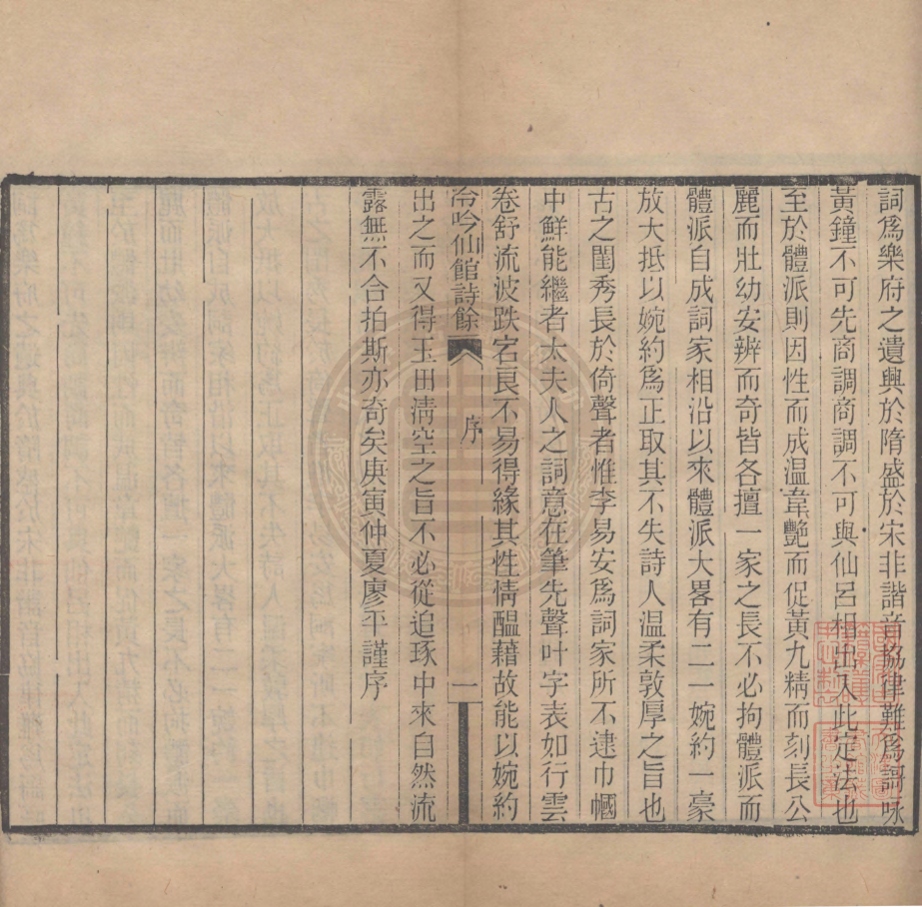 詞爲樂府之遺興於隋盛於宋非諧音協律難爲謌咏
黃鐘不可先商調商調不可與仙呂相出入此定法也
至於體派則因性而成温韋艷而促黃九精而刻長公
麗而壯幼安辨而奇皆各擅一家之長不必拘體派而
體派自成詞家相沿以來體派大畧有二一婉約一豪
放大抵以婉約爲正取其不失詩人温柔敦厚之旨也
古之閨秀長於倚聲者惟李易安爲詞家所不逮巾幗
中鮮能繼者太夫人之詞意在筆先聲叶字表如行雲
卷舒流波跌宕良不易得緣其性情醖藉故能以婉約
冷吟仙館詩餘 序 一
出之而又得玉田淸空之旨不必從追琢中來自然流
露無不合拍斯亦奇矣庚寅仲夏廖平謹序